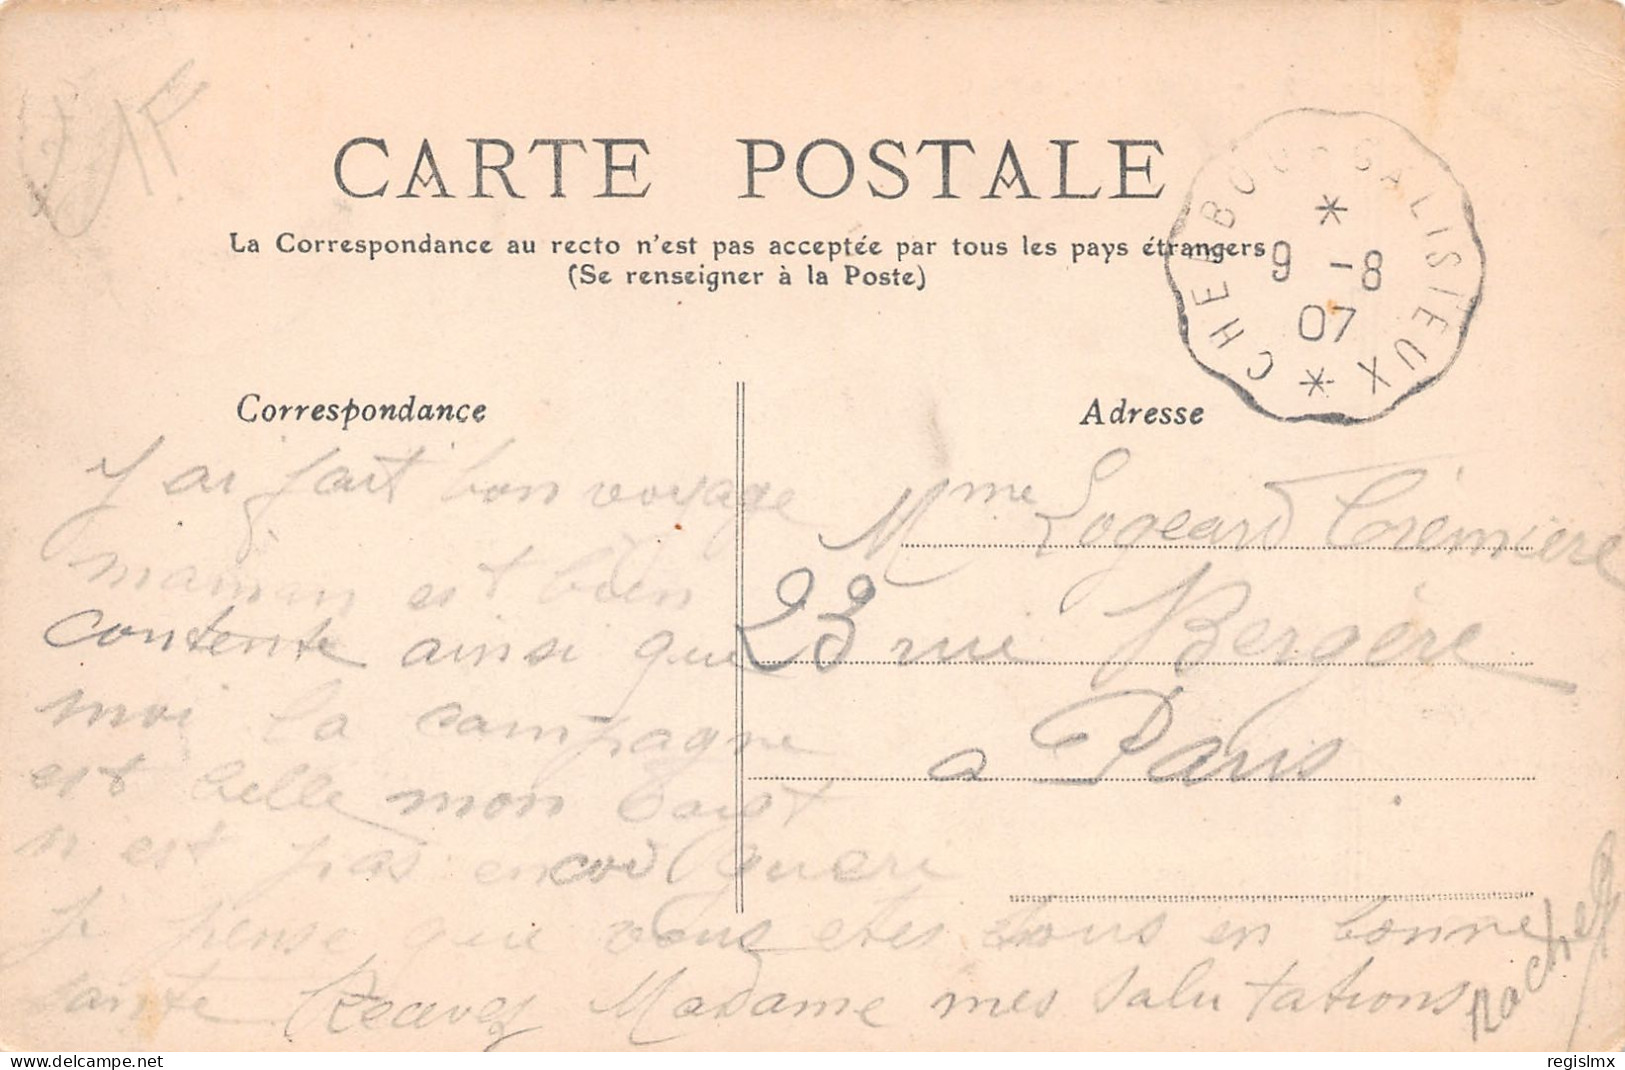 1F
CARTE POSTALE
La Correspondance au recto n'est pas acceptée par tous les pays étrangers
(Se renseigner à la Poste)
* CHERBOURG A LISIEUX *
9 -8
07
Correspondance
J ai fait bon voyage
maman est bien
contente ainsi que
moi la campagne
est belle mon
n est pas encore gueri
je pense que vous etes tous en bonne
sante Recevez Madame mes salutations
Rachel
Adresse
Mme Logeard Crémiere
23 rue Bergère
a Paris
www.delcampe.net
regislmx